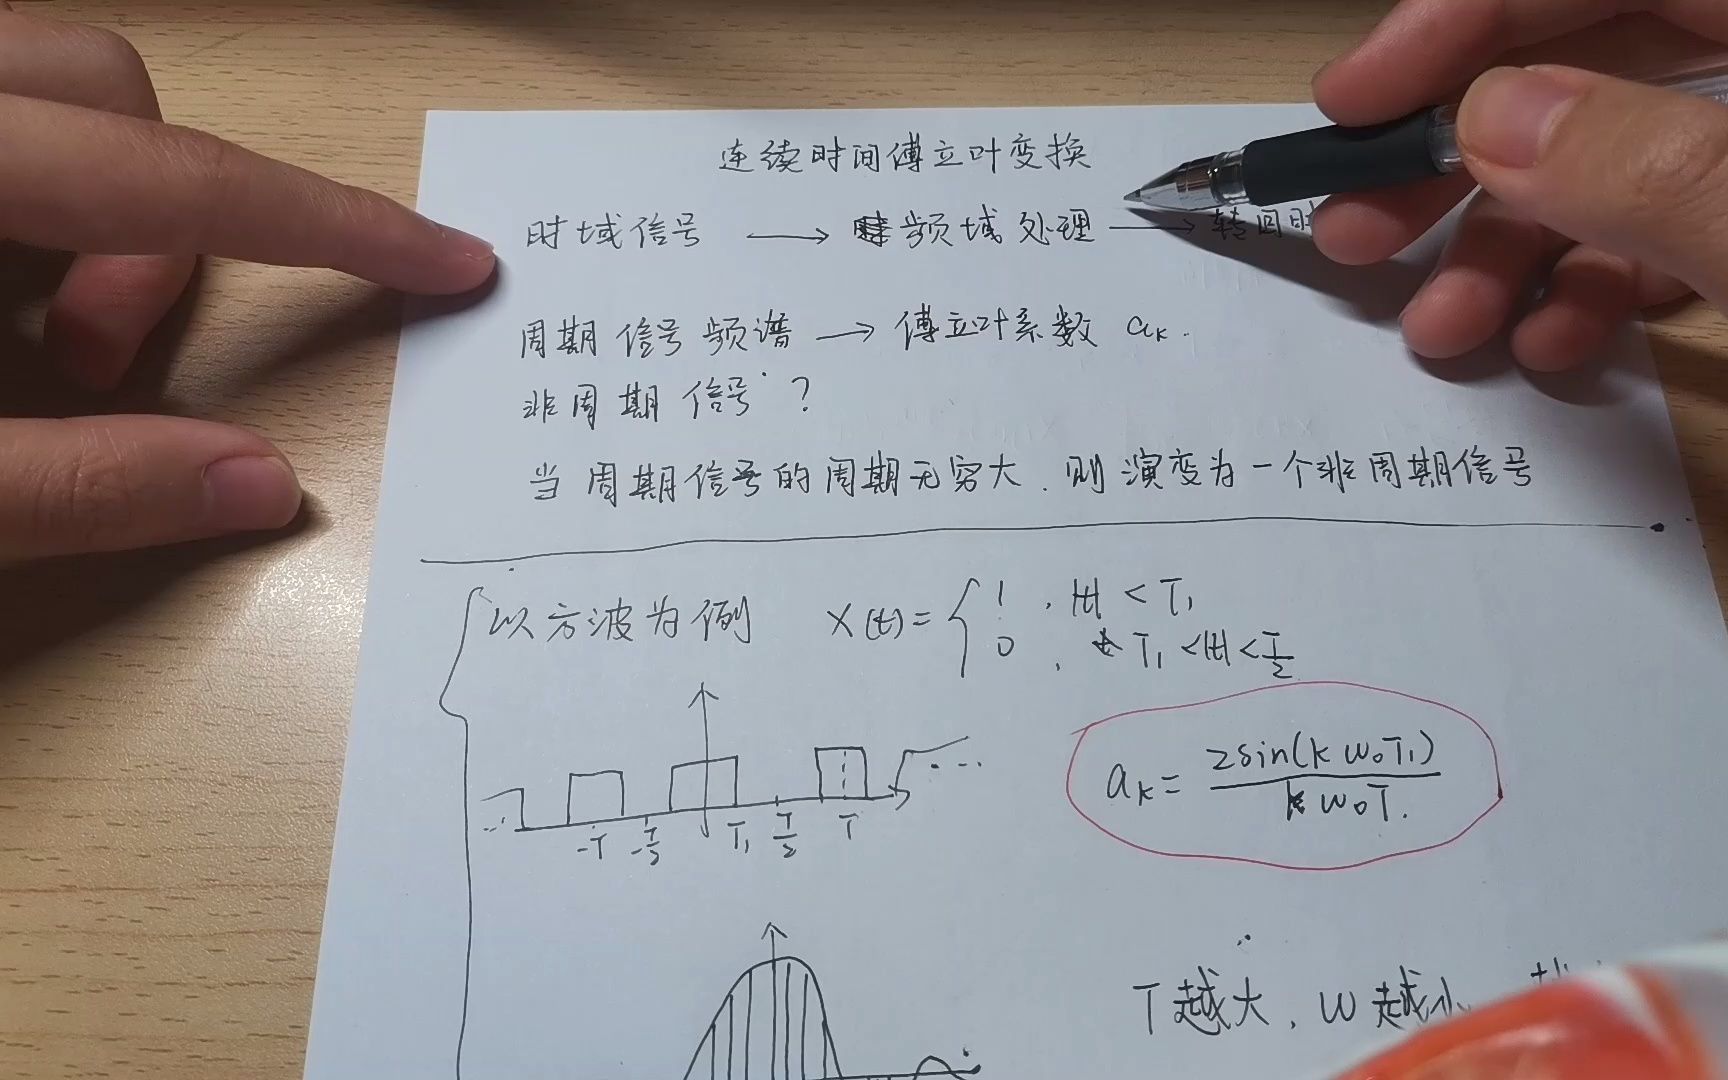 连续时间傅立叶变换
时域信号 → 频域处理 → 转回时
周期信号频谱 → 傅立叶系数 aₖ.
非周期信号 ?
当周期信号的周期无穷大. 则演变为一个非周期信号
以方波为例 x(t) = { 1 , |t| < T₁
0 , T₁ < |t| < T/2
-T -T/2 T₁ T/2 T
aₖ = 2sin(kω₀T₁) / kω₀T.
T越大, ω越小